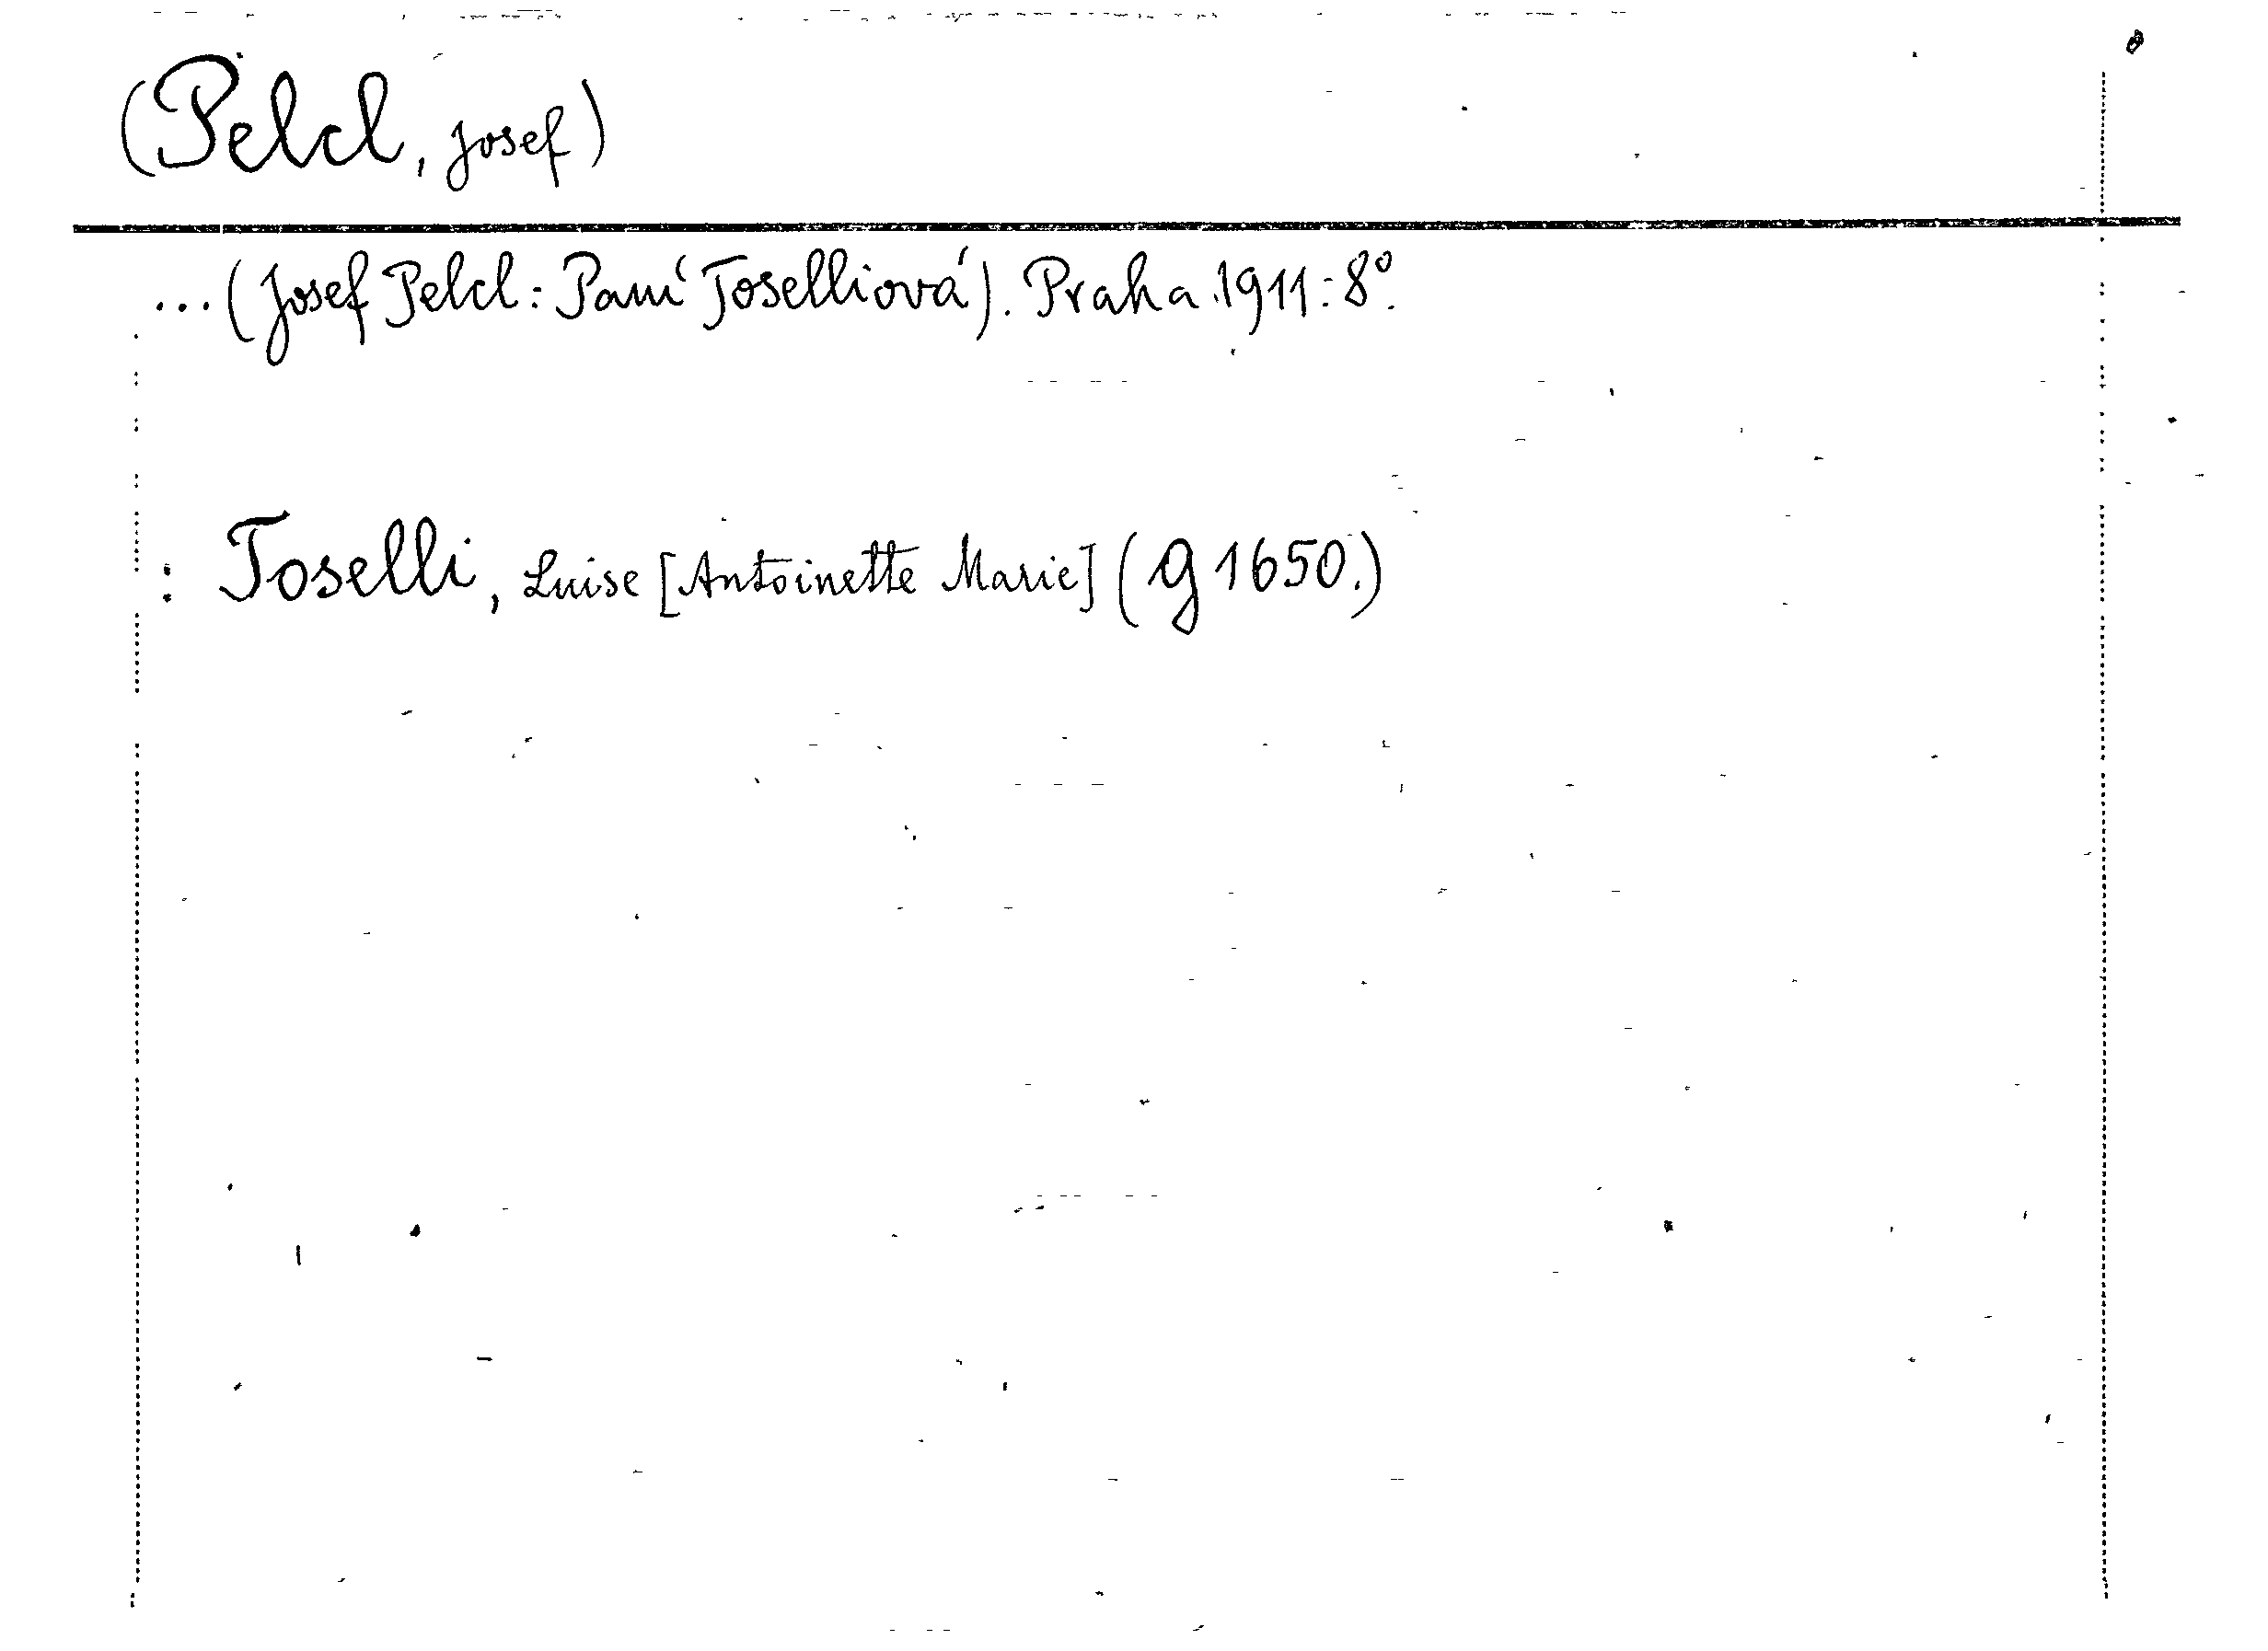 (Pelcl, Josef)
...(Josef Pelcl: Paní Toselliová). Praha 1911: 8°.
: Toselli, Luise [Antoinette Marie] (g 1650.)